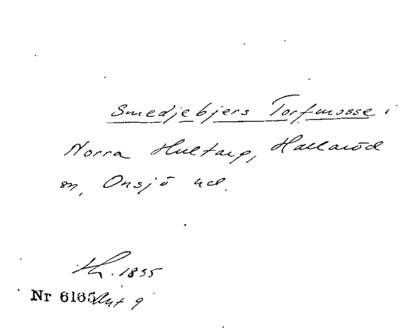 Smedjebjers Torfmosse i
Norra Hultarp, Hallaröd
sn, Onsjö hd.
th. 1835
Nr 6165